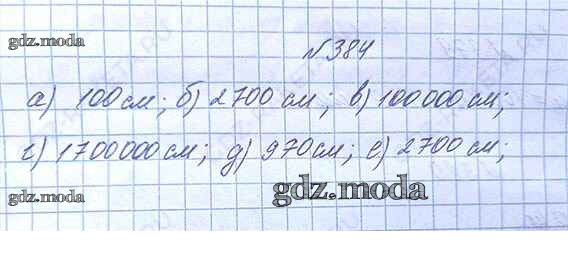 gdz.moda
№384
а) 100 см; б) 2700 см; в) 100000 см;
г) 1700000 см; д) 970 см; е) 2700 см;
gdz.moda
gdz.moda